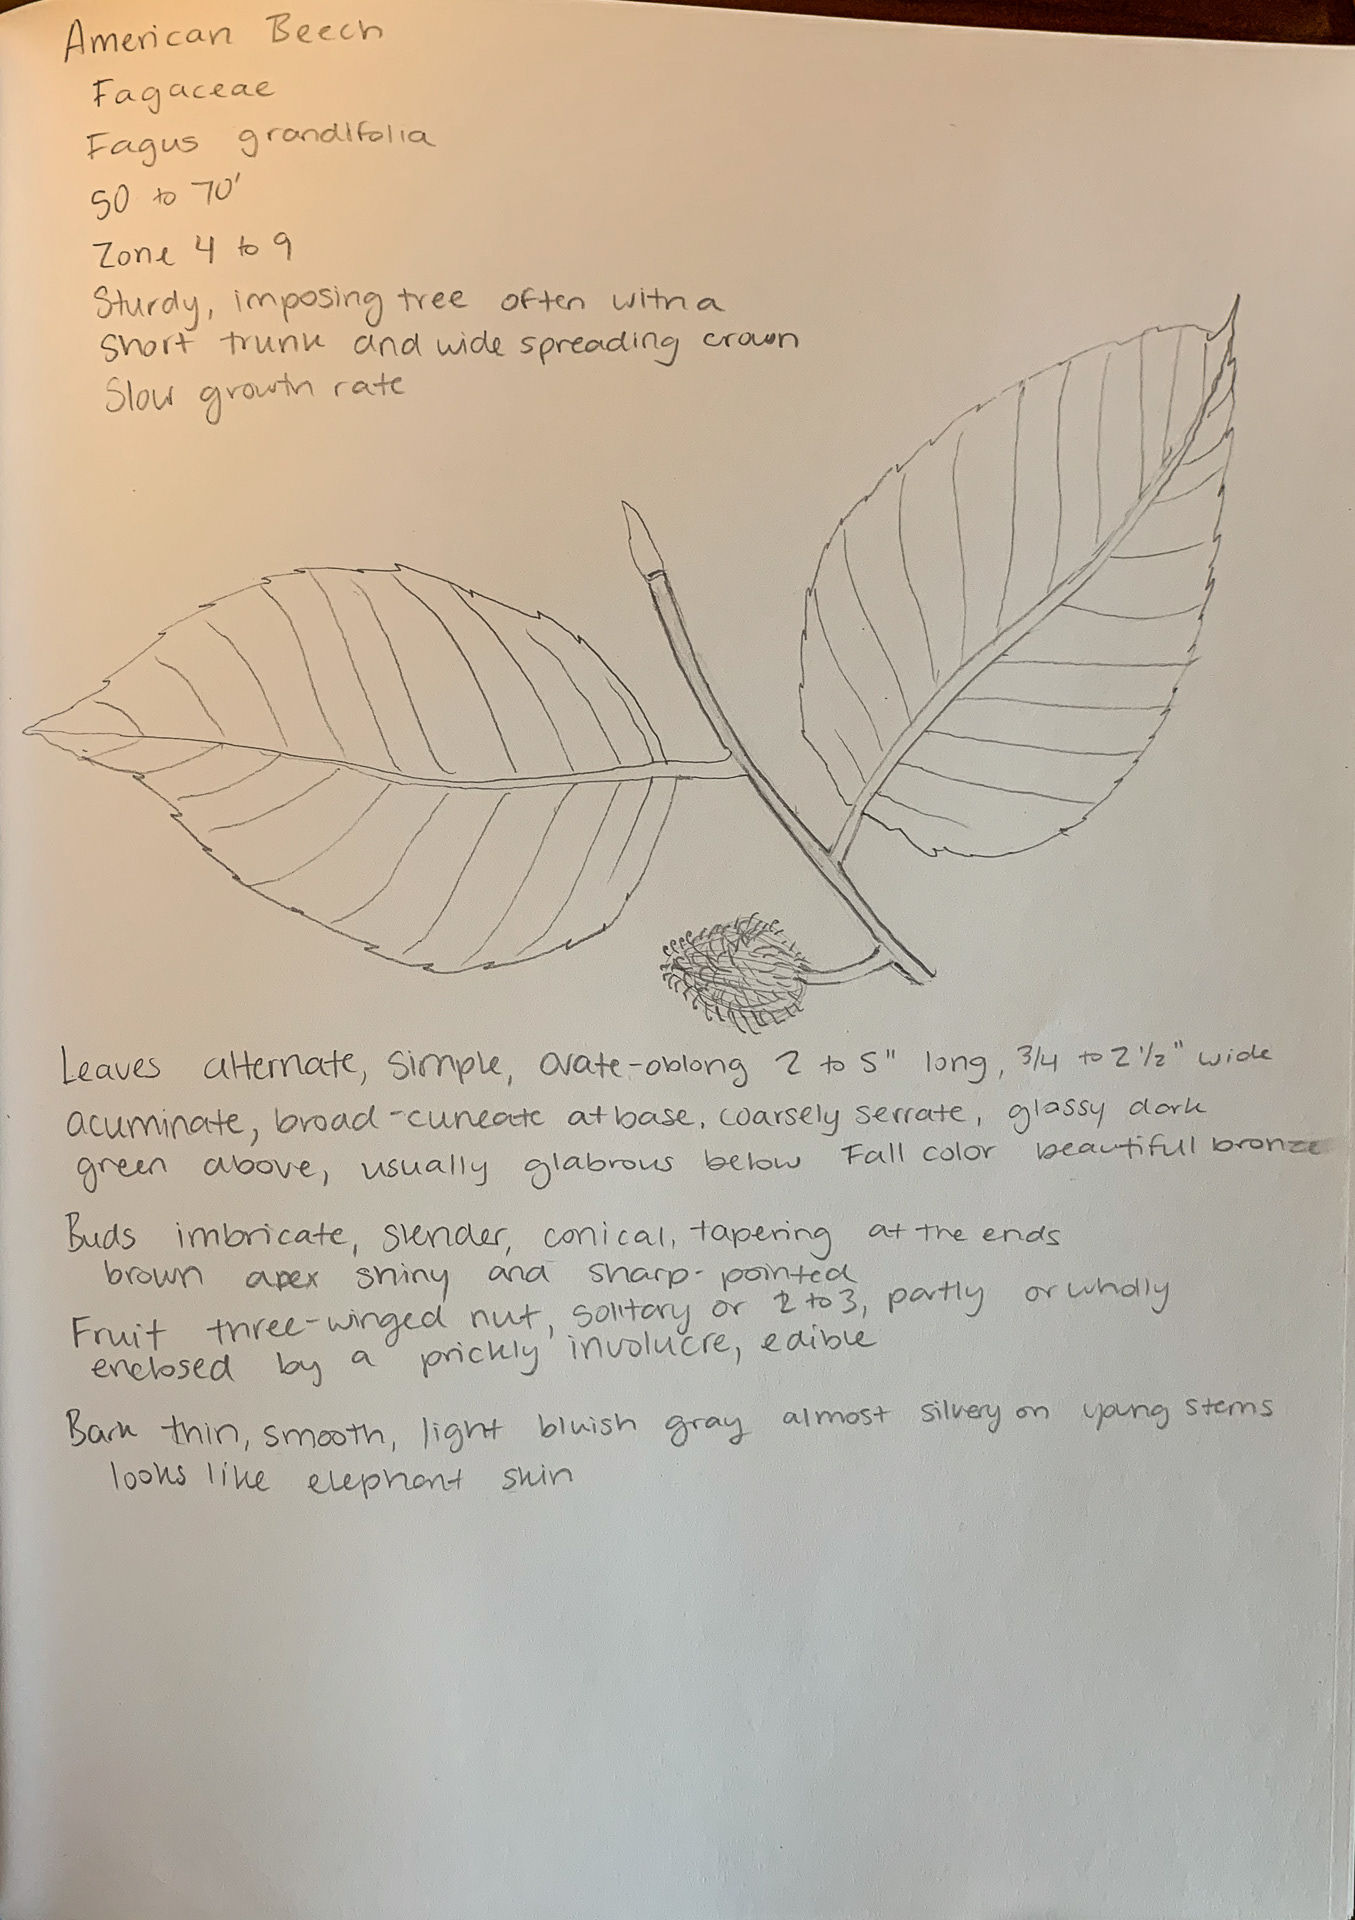 American Beech
Fagaceae
Fagus grandifolia
50 to 70'
Zone 4 to 9
Sturdy, imposing tree often with a
short trunk and wide spreading crown
Slow growth rate
Leaves alternate, simple, ovate-oblong 2 to 5" long, 3/4 to 2 1/2" wide
acuminate, broad-cuneate at base, coarsely serrate, glassy dark
green above, usually glabrous below Fall color beautiful bronze
Buds imbricate, slender, conical, tapering at the ends
brown apex shiny and sharp-pointed
Fruit three-winged nut, solitary or 2 to 3, partly or wholly
enclosed by a prickly involucre, edible
Bark thin, smooth, light bluish gray almost silvery on young stems
looks like elephant skin